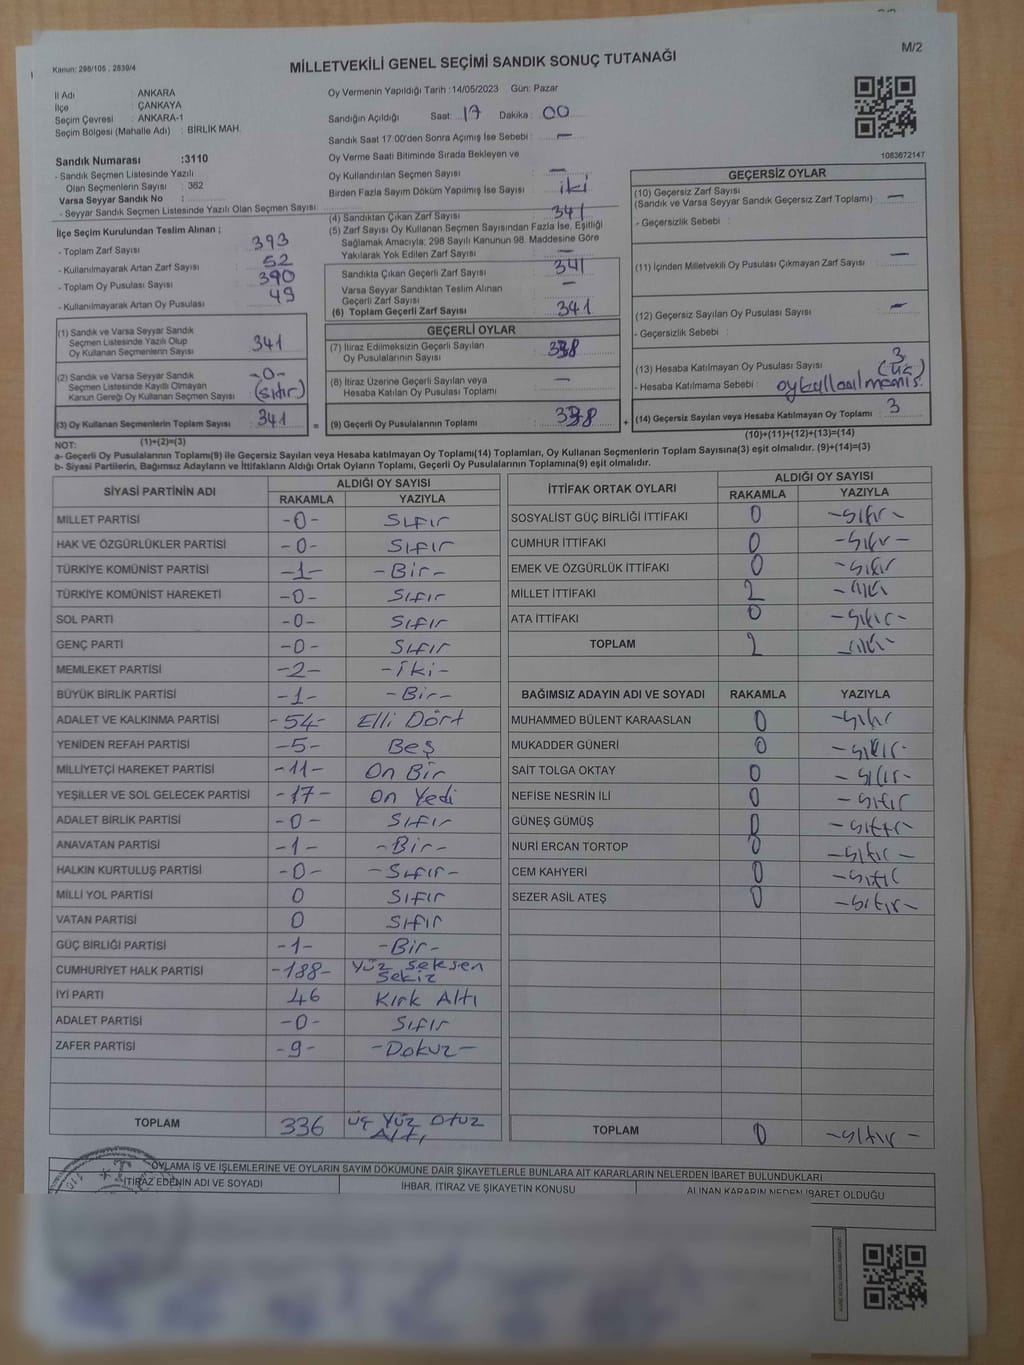 M/2
Kanun: 298/105 , 2839/4
MİLLETVEKİLİ GENEL SEÇİMİ SANDIK SONUÇ TUTANAĞI
İl Adı : ANKARA
İlçe : ÇANKAYA
Seçim Çevresi : ANKARA-1
Seçim Bölgesi (Mahalle Adı) : BİRLİK MAH.
Oy Vermenin Yapıldığı Tarih :14/05/2023 Gün: Pazar
Sandığın Açıldığı Saat: 17 Dakika: 00
Sandık Saat 17:00'den Sonra Açılmış İse Sebebi : —
Oy Verme Saati Bitiminde Sırada Bekleyen ve
Oy Kullandırılan Seçmen Sayısı : —
Birden Fazla Sayım Döküm Yapılmış İse Sayısı : iki
1083672147
Sandık Numarası :3110
- Sandık Seçmen Listesinde Yazılı
Olan Seçmenlerin Sayısı : 362
Varsa Seyyar Sandık No :
- Seyyar Sandık Seçmen Listesinde Yazılı Olan Seçmen Sayısı:
İlçe Seçim Kurulundan Teslim Alınan ;
- Toplam Zarf Sayısı : 393
- Kullanılmayarak Artan Zarf Sayısı : 52
- Toplam Oy Pusulası Sayısı : 390
- Kullanılmayarak Artan Oy Pusulası : 49
(1) Sandık ve Varsa Seyyar Sandık
Seçmen Listesinde Yazılı Olup
Oy Kullanan Seçmenlerin Sayısı : 341
(2) Sandık ve Varsa Seyyar Sandık
Seçmen Listesinde Kayıtlı Olmayan
Kanun Gereği Oy Kullanan Seçmen Sayısı : -0- (sıfır)
(3) Oy Kullanan Seçmenlerin Toplam Sayısı : 341
(1)+(2)=(3)
(4) Sandıktan Çıkan Zarf Sayısı : 341
(5) Zarf Sayısı Oy Kullanan Seçmen Sayısından Fazla İse, Eşitliği
Sağlamak Amacıyla; 298 Sayılı Kanunun 98. Maddesine Göre
Yakılarak Yok Edilen Zarf Sayısı : —
Sandıkta Çıkan Geçerli Zarf Sayısı : 341
Varsa Seyyar Sandıktan Teslim Alınan
Geçerli Zarf Sayısı : —
(6) Toplam Geçerli Zarf Sayısı : 341
GEÇERLİ OYLAR
(7) İtiraz Edilmeksizin Geçerli Sayılan
Oy Pusulalarının Sayısı : 338
(8) İtiraz Üzerine Geçerli Sayılan veya
Hesaba Katılan Oy Pusulası Toplamı : —
= (9) Geçerli Oy Pusulalarının Toplamı : 338 +
GEÇERSİZ OYLAR
(10) Geçersiz Zarf Sayısı
(Sandık ve Varsa Seyyar Sandık Geçersiz Zarf Toplamı) : —
- Geçersizlik Sebebi :
(11) İçinden Milletvekili Oy Pusulası Çıkmayan Zarf Sayısı : —
(12) Geçersiz Sayılan Oy Pusulası Sayısı : —
- Geçersizlik Sebebi :
(13) Hesaba Katılmayan Oy Pusulası Sayısı : 3 (üç)
- Hesaba Katılmama Sebebi : oy kullanılmamış.
(14) Geçersiz Sayılan veya Hesaba Katılmayan Oy Toplamı : 3
(10)+(11)+(12)+(13)=(14)
NOT:
a- Geçerli Oy Pusulalarının Toplamı(9) ile Geçersiz Sayılan veya Hesaba katılmayan Oy Toplamı(14) Toplamları, Oy Kullanan Seçmenlerin Toplam Sayısına(3) eşit olmalıdır. (9)+(14)=(3)
b- Siyasi Partilerin, Bağımsız Adayların ve İttifakların Aldığı Ortak Oyların Toplamı, Geçerli Oy Pusulalarının Toplamına(9) eşit olmalıdır.
SİYASİ PARTİNİN ADI ALDIĞI OY SAYISI
RAKAMLA YAZIYLA
MİLLET PARTİSİ -0- Sıfır
HAK VE ÖZGÜRLÜKLER PARTİSİ -0- Sıfır
TÜRKİYE KOMÜNİST PARTİSİ -1- -Bir-
TÜRKİYE KOMÜNİST HAREKETİ -0- Sıfır
SOL PARTİ -0- Sıfır
GENÇ PARTİ -0- Sıfır
MEMLEKET PARTİSİ -2- -iki-
BÜYÜK BİRLİK PARTİSİ -1- -Bir-
ADALET VE KALKINMA PARTİSİ -54- Elli Dört
YENİDEN REFAH PARTİSİ -5- Beş
MİLLİYETÇİ HAREKET PARTİSİ -11- On Bir
YEŞİLLER VE SOL GELECEK PARTİSİ -17- On Yedi
ADALET BİRLİK PARTİSİ -0- Sıfır
ANAVATAN PARTİSİ -1- -Bir-
HALKIN KURTULUŞ PARTİSİ -0- -Sıfır-
MİLLİ YOL PARTİSİ 0 Sıfır
VATAN PARTİSİ 0 Sıfır
GÜÇ BİRLİĞİ PARTİSİ -1- -Bir-
CUMHURİYET HALK PARTİSİ -188- Yüz Seksen Sekiz
İYİ PARTİ 46 Kırk Altı
ADALET PARTİSİ -0- Sıfır
ZAFER PARTİSİ -9- -Dokuz-
TOPLAM 336 üç Yüz Otuz Altı
İTTİFAK ORTAK OYLARI ALDIĞI OY SAYISI
RAKAMLA YAZIYLA
SOSYALİST GÜÇ BİRLİĞİ İTTİFAKI 0 -sıfır-
CUMHUR İTTİFAKI 0 -sıfır-
EMEK VE ÖZGÜRLÜK İTTİFAKI 0 -sıfır
MİLLET İTTİFAKI 2 -iki
ATA İTTİFAKI 0 -sıfır-
TOPLAM 2 -iki-
BAĞIMSIZ ADAYIN ADI VE SOYADI RAKAMLA YAZIYLA
MUHAMMED BÜLENT KARAASLAN 0 -sıfır
MUKADDER GÜNERİ 0 -sıfır-
SAİT TOLGA OKTAY 0 -sıfır-
NEFİSE NESRİN İLİ 0 -sıfır
GÜNEŞ GÜMÜŞ 0 -sıfır-
NURİ ERCAN TORTOP 0 -sıfır-
CEM KAHYERİ 0 -sıfır
SEZER ASİL ATEŞ 0 -sıfır-
TOPLAM 0 -sıfır-
OYLAMA İŞ VE İŞLEMLERİNE VE OYLARIN SAYIM DÖKÜMÜNE DAİR ŞİKAYETLERLE BUNLARA AİT KARARLARIN NELERDEN İBARET BULUNDUKLARI
İTİRAZ EDENİN ADI VE SOYADI İHBAR, İTİRAZ VE ŞİKAYETİN KONUSU ALINAN KARARIN NEDEN İBARET OLDUĞU